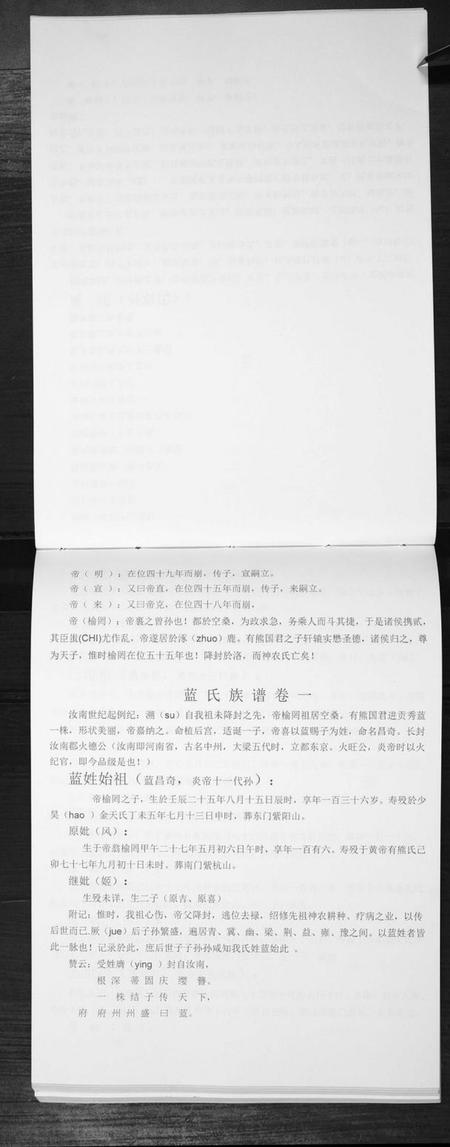 帝（ 明 ）：在位四十九年而崩，传子，宣嗣立。
帝（ 宣 ）：又曰帝直，在位四十五年而崩，传子，来嗣立。
帝（ 来 ）：又曰帝克，在位四十八年而崩，
帝（榆罔）：帝裹之曾孙也！都於空桑，为政求急，务乘人而斗其捷，于是诸侯携贰，
其臣蚩(CHI)尤作乱，帝遂居於涿（zhuo）鹿。有熊国君之子轩辕实懋圣德，诸侯归之，尊
为天子，惟时榆罔在位五十五年也！降封於洛，而神农氏亡矣！
蓝氏族谱卷一
汝南世纪起例纪：溯（su）自我祖未降封之先，帝榆罔祖居空桑，有熊国君进贡秀蓝
一株，形状美丽，帝嘉纳之。命植后宫，适诞一子，帝喜以蓝赐子为姓，命名昌奇。长封
汝南郡火德公（汝南即河南省，古名中州，大梁五代时，立都东京。火旺公，炎帝时以火
纪官，即今品级是也！）
蓝姓始祖（蓝昌奇，炎帝十一代孙）：
帝榆罔之子，生於壬辰二十五年八月十五日辰时，享年一百三十六岁。寿殁於少
昊（hao ）金天氏丁未五年七月十三日申时，葬东门紫阳山。
原妣（风）：
生于帝翁榆罔甲午二十七年五月初六日午时，享年一百有六。寿殁于黄帝有熊氏己
卯七十七年九月初十日未时。葬南门紫杭山。
继妣（姬）：
生殁未详，生二子（原吉、原喜）
附记：惟时，我祖心伤，帝父降封，逃位去禄，绍修先祖神农耕种、疗病之业，以传
后世而已.厥（jue）后子孙繁盛，遍居青、冀、幽、梁、荆、益、雍、豫之间。以蓝姓者皆
此一脉也！记录於此，庶后世子子孙孙咸知我氏姓蓝始此 。
赞云：受姓膺（ying ）封自汝南，
根 深 蒂 固 庆 缨 簪。
一 株 结 子 传 天 下，
府 府 州 州 盛 曰 蓝。